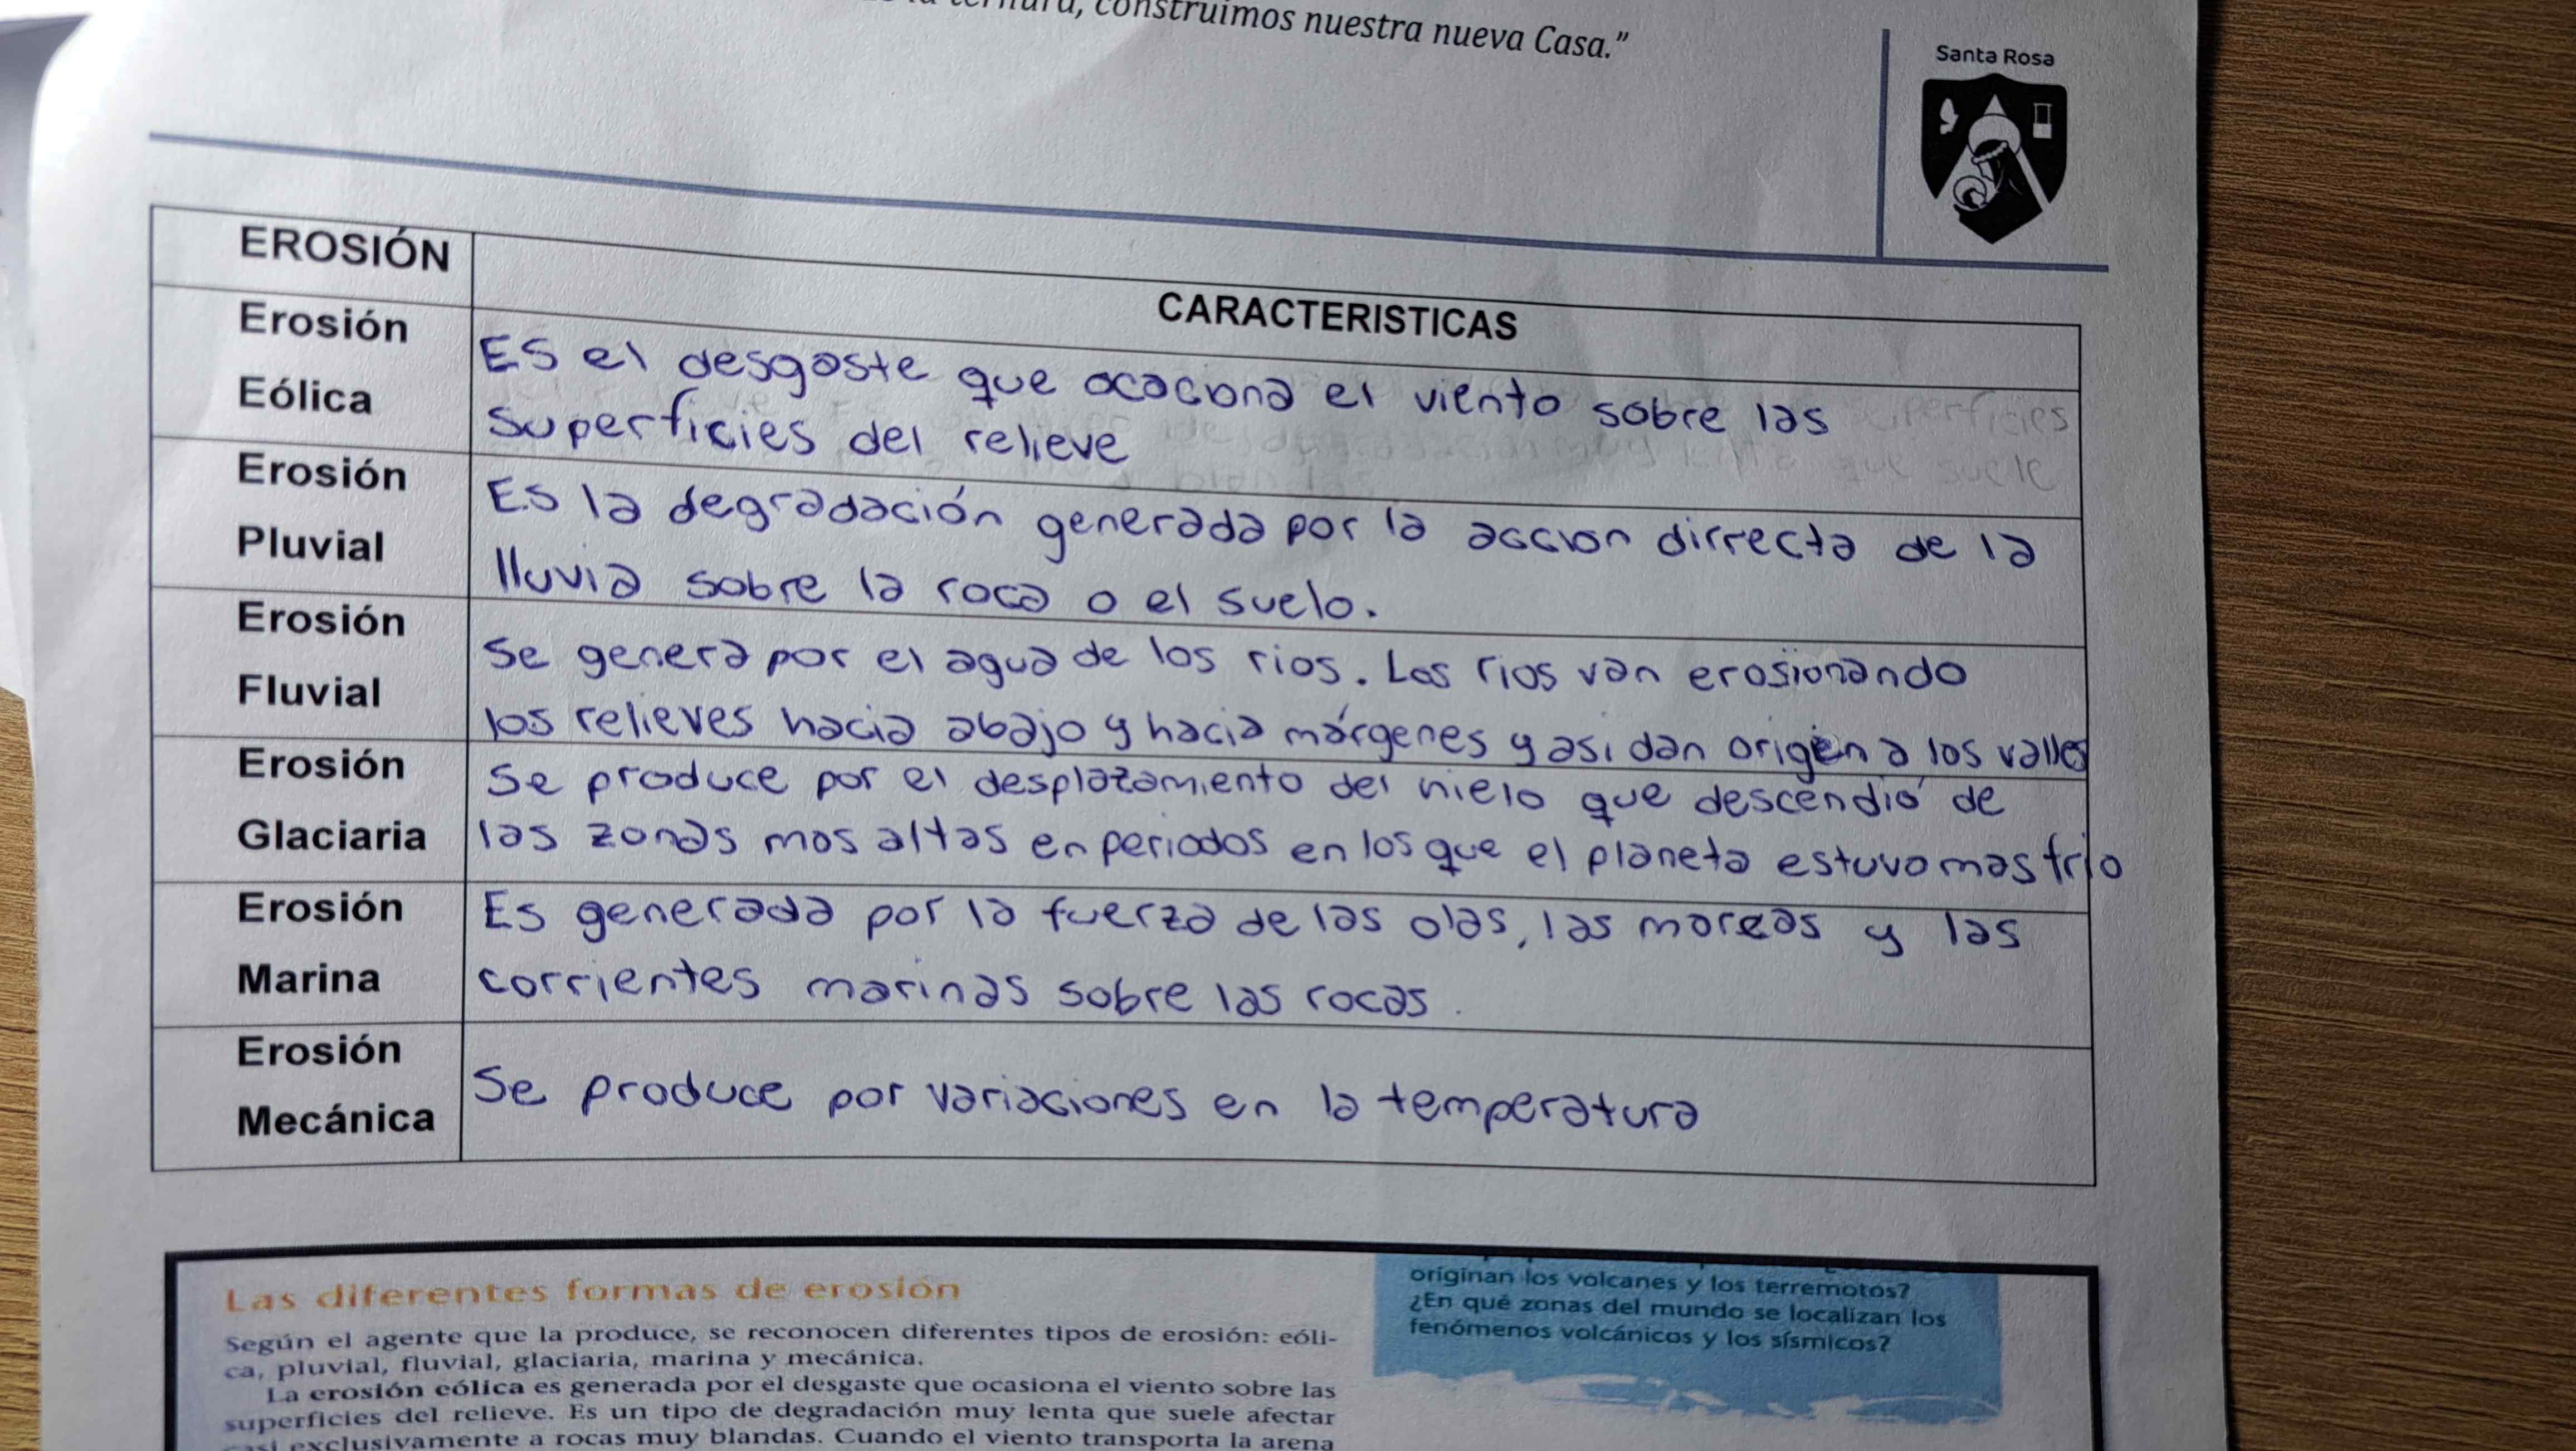 la ternura, construimos nuestra nueva Casa."
Santa Rosa
EROSIÓN
CARACTERISTICAS
Erosión
Eólica
ES el desgaste que ocaciona el viento sobre las
superficies del relieve
superficies
que suele
Erosión
Pluvial
Es la degradación generada por la accion dirrecta de la
lluvia sobre la roca o el suelo.
Erosión
Fluvial
Se genera por el agua de los rios. Los rios van erosionando
los relieves hacia abajo y hacia márgenes y asi dan origen a los valles
Erosión
Glaciaria
Se produce por el desplazamiento del hielo que descendió de
las zonas mas altas en periodos en los que el planeta estuvo mas frio
Erosión
Marina
Es generada por la fuerza de las olas, las mareas y las
corrientes marinas sobre las rocas.
Erosión
Mecánica
Se produce por variaciones en la temperatura
Las diferentes formas de erosión
Según el agente que la produce, se reconocen diferentes tipos de erosión: eóli-
ca, pluvial, fluvial, glaciaria, marina y mecánica.
La erosión eólica es generada por el desgaste que ocasiona el viento sobre las
superficies del relieve. Es un tipo de degradación muy lenta que suele afectar
casi exclusivamente a rocas muy blandas. Cuando el viento transporta la arena
originan los volcanes y los terremotos?
¿En qué zonas del mundo se localizan los
fenómenos volcánicos y los sísmicos?